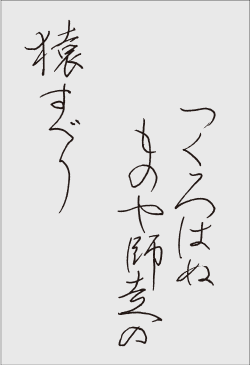 つくろはぬ
ものや師走の
猿すべり